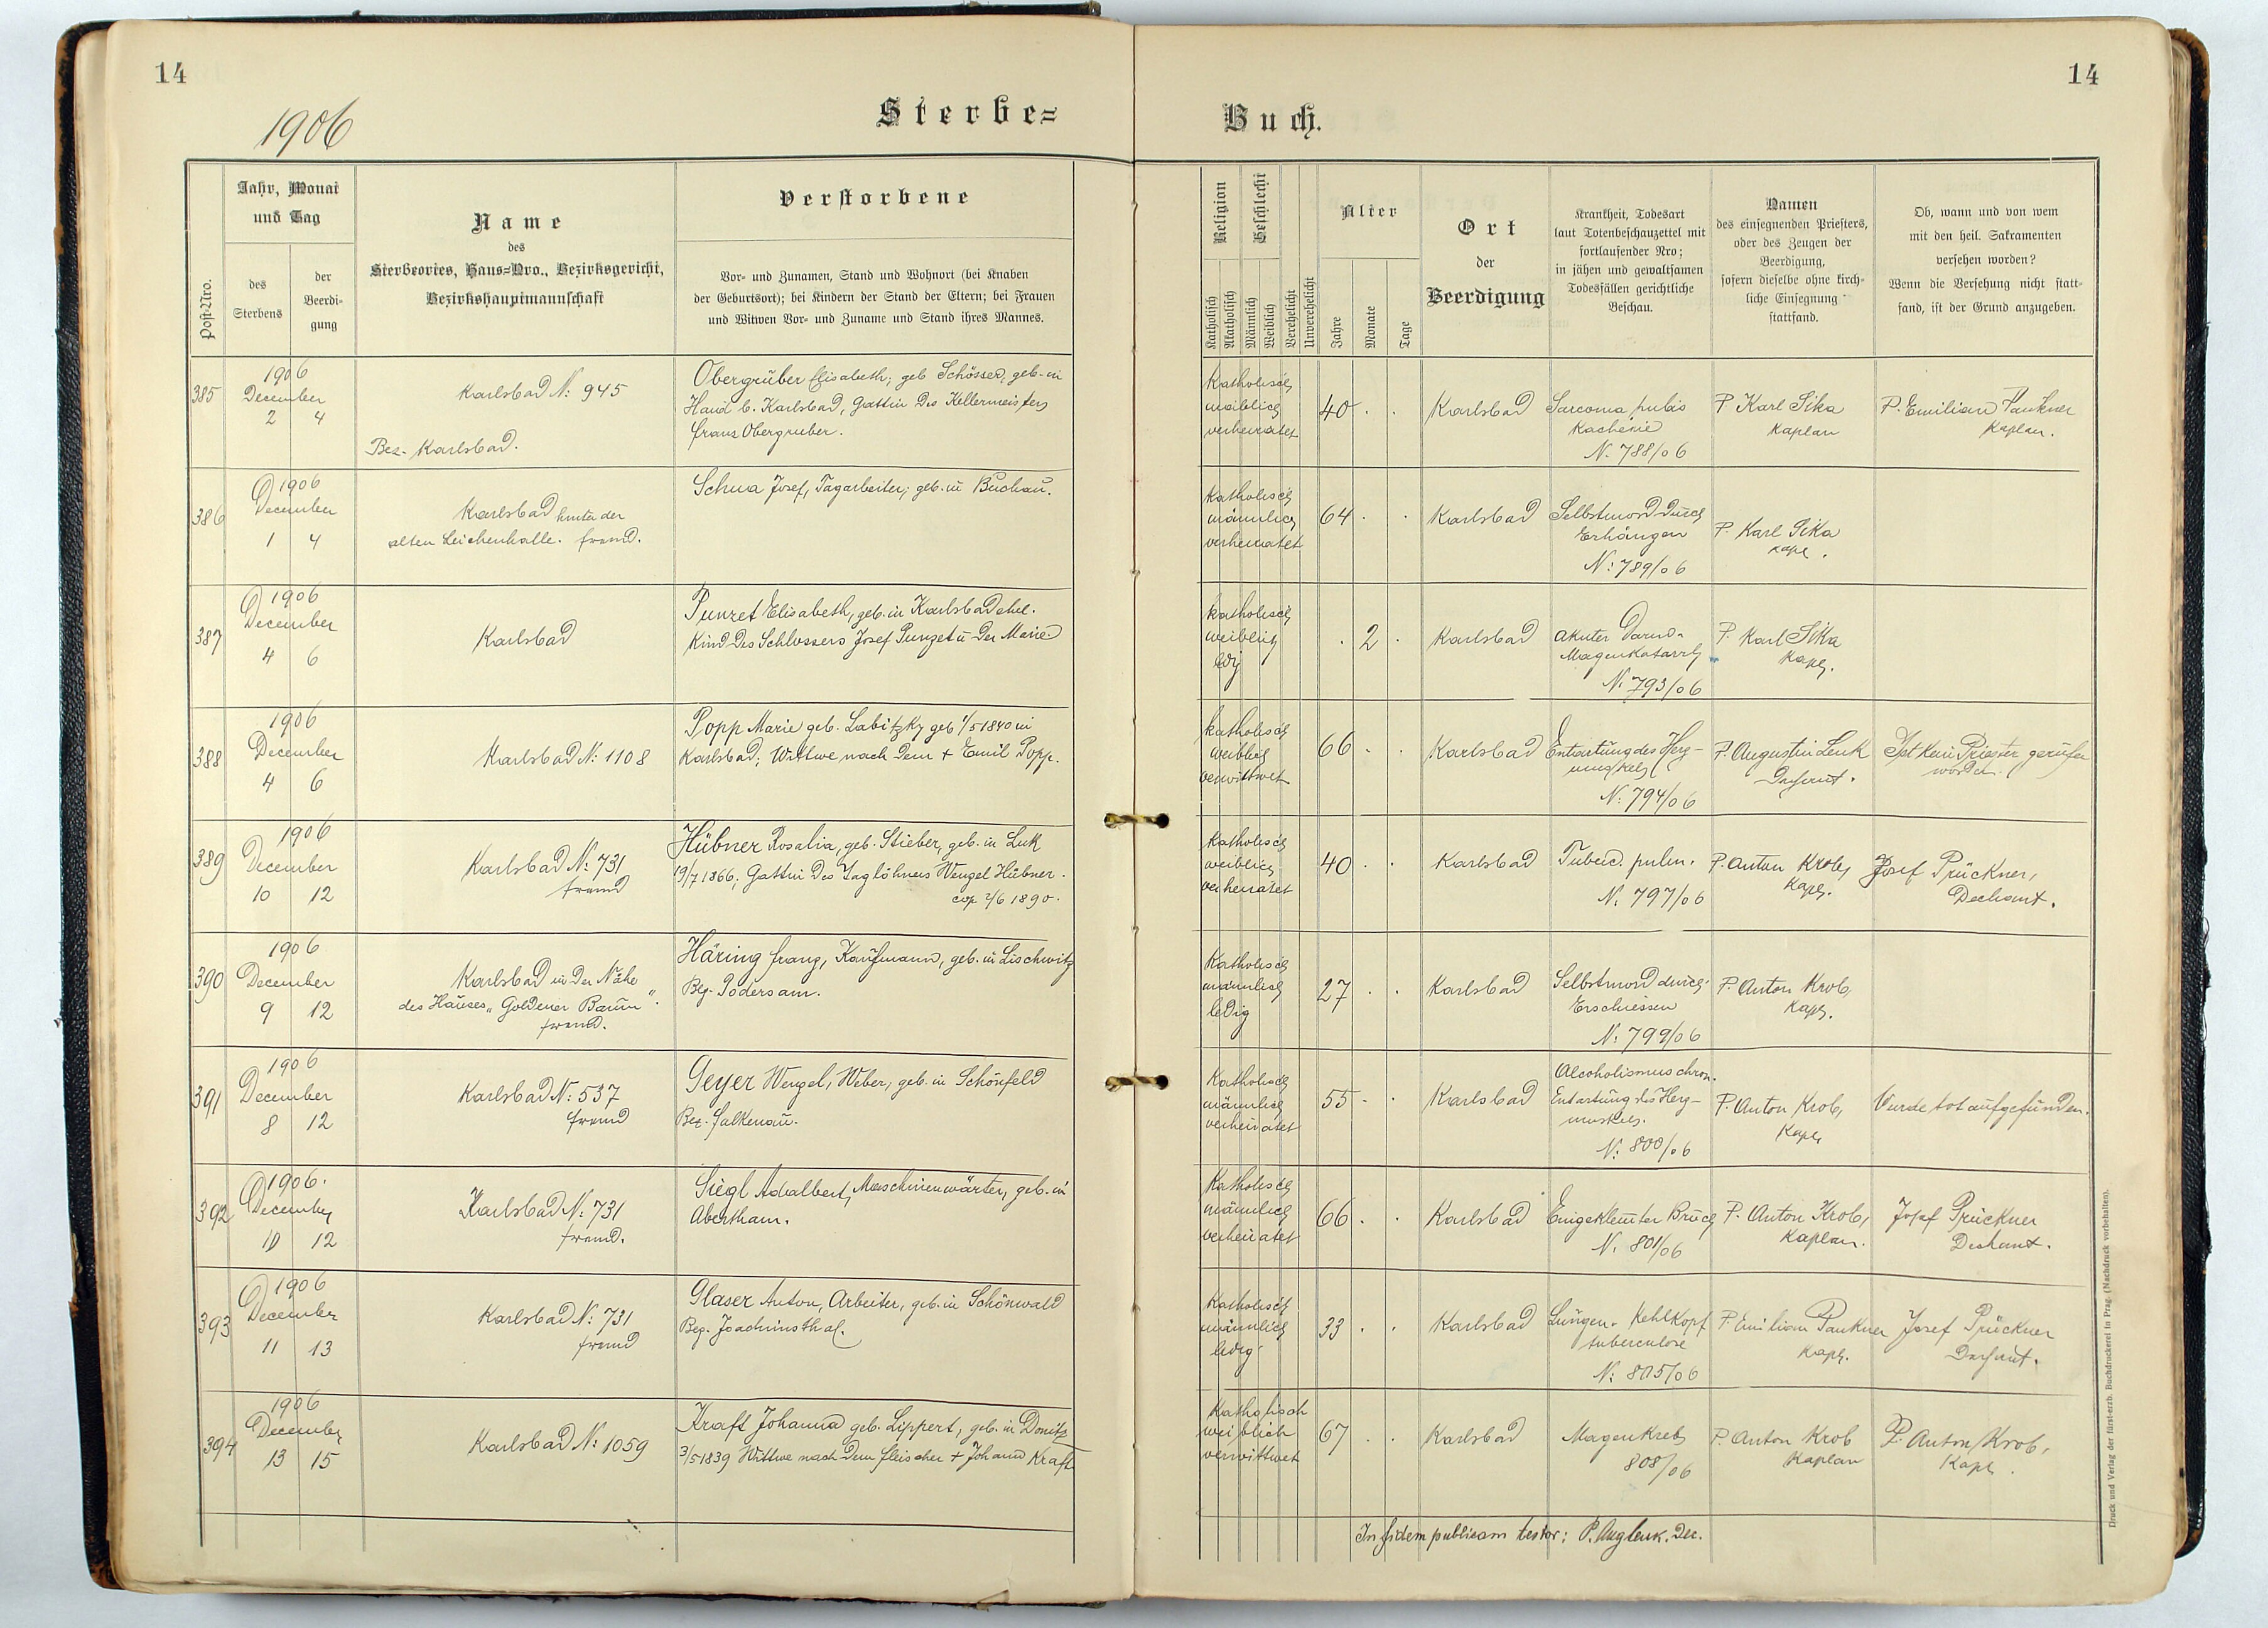 14
1906
Sterbe=
Buch.
14
Post-Nro.
Jahr, Monat
und Tag
des
Sterbens
der
Beerdi-
gung
Name
des
Sterbeortes, Haus=Nro., Bezirksgericht,
Bezirkshauptmannschaft
Verstorbene
Vor- und Zunamen, Stand und Wohnort (bei Knaben
der Geburtsort); bei Kindern der Stand der Eltern; bei Frauen
und Witwen Vor- und Zuname und Stand ihres Mannes.
Religion
Katholisch
Akatholisch
Geschlecht
Männlich
Weiblich
Verehelicht
Unverehelicht
Alter
Jahre
Monate
Tage
Ort
der
Beerdigung
Krankheit, Todesart
laut Totenbeschauzettel mit
fortlaufender Nro;
in jähen und gewaltsamen
Todesfällen gerichtliche
Beschau.
Namen
des einsegnenden Priesters,
oder des Zeugen der
Beerdigung,
sofern dieselbe ohne kirch-
liche Einsegnung
stattfand.
Ob, wann und von wem
mit den heil. Sakramenten
versehen worden?
Wenn die Versehung nicht statt-
fand, ist der Grund anzugeben.
385
1906
December
2 4
Karlsbad N: 945
Bez. Karlsbad.
Obergruber Elisabeth; geb Schösser, geb. in
Haid b. Karlsbad, Gattin des Kellermeisters
Franz Obergruber.
Katholisch
weiblich
verheiratet
40 . .
Karlsbad
Sarcoma pubis
Kachexie
N. 788/06
P Karl Sika
Kaplan
P. Emilian Paukner
Kaplan.
386
1906
December
1 4
Karlsbad hinter der
alten Leichenhalle. fremd.
Schua Josef, Tagarbeiter; geb. in Buchau.
Katholisch
männlich
verheiratet
64 . .
Karlsbad
Selbstmord durch
Erhängen
N: 789/06
P. Karl Sika
Kapl.
387
1906
December
4 6
Karlsbad
Punzet Elisabeth, geb. in Karlsbad ehel.
Kind des Schlossers Josef Punzet u der Marie.
katholisch
weiblich
ledig
. 2 .
Karlsbad
akuter Darm-
Magenkatarrh
N. 793/06
P. Karl Sika
Kapl.
388
1906
December
4 6
Karlsbad N: 1108
Popp Marie geb. Labitzky geb 1/5 1840 in
Karlsbad; Wittwe nach dem + Emil Popp.
katholisch
weiblich
verwittwet
66 . .
Karlsbad
Entartung des Herz-
muskels
N: 794/06
P. Augustin Lenk
Dechant.
Ist kein Priester gerufen
worden.
389
1906
December
10 12
Karlsbad N: 731
fremd
Hübner Rosalia, geb. Stieber, geb. in Luk
19/7 1866; Gattin des Taglöhners Wenzel Hübner.
cop 2/6 1890.
Katholisch
weiblich
verheiratet
40 . .
Karlsbad
Tuberc. pulm.
N. 797/06
P. Anton Krob,
Kapl.
Josef Prückner,
Dechant.
390
1906
December
9 12
Karlsbad in der Nähe
des Hauses „Goldener Baum“.
fremd.
Häring Franz, Kaufmann, geb. in Lischwitz
Bez. Podersam.
Katholisch
männlich
ledig
27 . .
Karlsbad
Selbstmord durch
Erschiessen
N: 799/06
P. Anton Krob,
Kapl.
391
1906
December
8 12
Karlsbad N: 537
fremd
Geyer Wenzel, Weber, geb. in Schönfeld
Bez. Falkenau.
Katholisch
männlich
verheiratet
55 . .
Karlsbad
Alcoholismus chron.
Entartung des Herz-
muskels.
N: 800/06
P. Anton Krob,
Kapl.
Wurde tot aufgefunden.
392
1906.
December
10 12
Karlsbad N: 731
fremd.
Siegl Adalbert, Maschinenwärter, geb. in
Abertham.
Katholisch
männlich
verheiratet
66 . .
Karlsbad
Eingeklemmter Bruch
N. 801/06
P. Anton Krob,
Kaplan.
Josef Prückner
Dechant.
393
1906
December
11 13
Karlsbad N: 731
fremd
Glaser Anton, Arbeiter, geb. in Schönwald
Bez. Joachimsthal.
Katholisch
männlich
ledig
33 . .
Karlsbad
Lungen- Kehlkopf
tuberculose
N: 805/06
P. Emilian Paukner
Kapl.
Josef Prückner
Dechant.
394
1906
December
13 15
Karlsbad N: 1059
Kraft Johanna geb. Lippert, geb. in Donitz
3/5 1839 Wittwe nach dem Fleischer + Johann Kraft
Katholisch
weiblich
verwittwet
67 . .
Karlsbad
Magenkrebs
808/06
P. Anton Krob
Kaplan
P. Anton Krob,
Kapl.
In fidem publicam testor: P. Aug Lenk. Dec.
Druck und Verlag der fürst-erzb. Buchdruckerei in Prag. (Nachdruck vorbehalten).